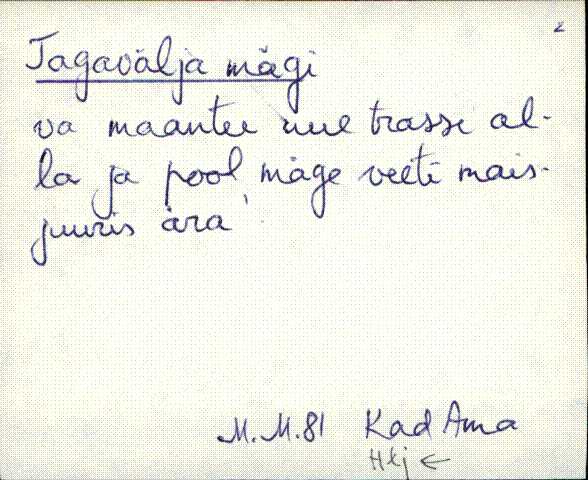 2
Tagavälja mägi
va maantee uue trassi al-
la ja pool mäge veeti mais-
juuris ära
M.M.81 Kad Ama
Hlj ←